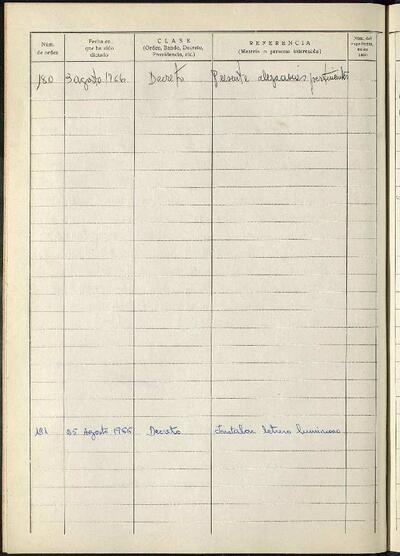 Núm. de orden
Fecha en que ha sido dictado
CLASE (Orden, Bando, Decreto, Providencia, etc.)
REFERENCIA (Materia o persona interesada)
Núm. del
180 3 agosto 1966 Decreto Presente alegaciones pertinentes
181 25 Agosto 1966 Decreto Instalar letrero luminoso